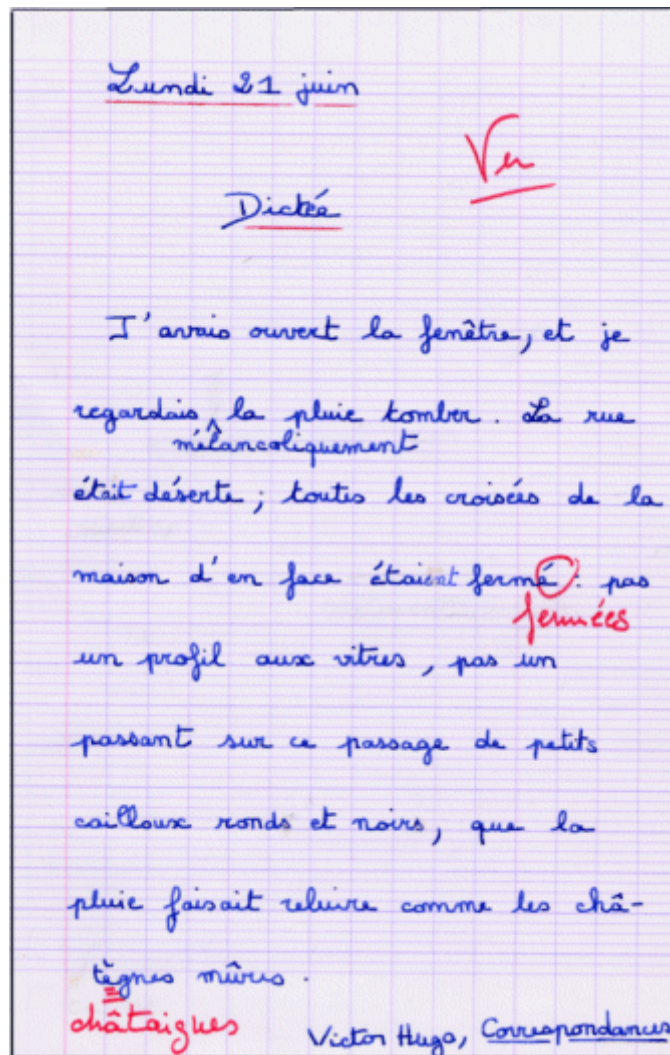 Lundi 21 juin
Vu
Dictée
J'avais ouvert la fenêtre, et je
regardais la pluie tomber. La rue
mélancoliquement
était déserte ; toutes les croisées de la
maison d'en face étaient fermé : pas
fermées
un profil aux vitres, pas un
passant sur ce passage de petits
cailloux ronds et noirs, que la
pluie faisait reluire comme les châ-
tègnes mûres.
châtaignes
Victor Hugo, Correspondances